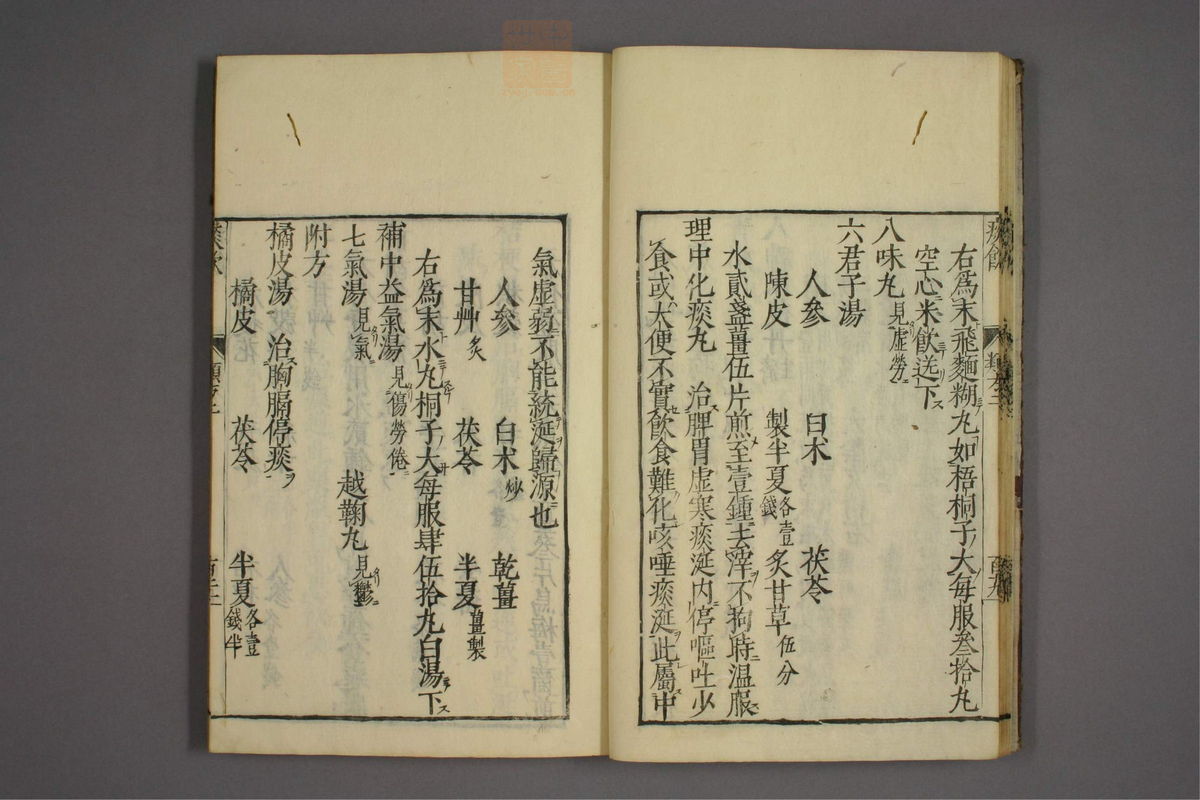 右爲末飛麵糊丸如梧桐子大每服叁拾丸
空心米飲送下
八味丸見虛勞
六君子湯
人參 白朮 茯苓
陳皮 製半夏各壹錢 炙甘草伍分
水貳盞薑伍片煎至壹鍾去滓不拘時温服
理中化痰丸 治脾胃虛寒痰涎内停嘔吐少
食或大便不實飲食難化咳唾痰涎此屬中
氣虛弱不能統涎歸源也
人參 白朮炒 乾薑
甘艸炙 茯苓 半夏薑製
右爲末水丸桐子大每服肆伍拾丸白湯下
補中益氣湯見傷勞倦
七氣湯見氣 越鞠丸見鬱
附方
橘皮湯 治胸膈停痰
橘皮 茯苓 半夏各壹錢半